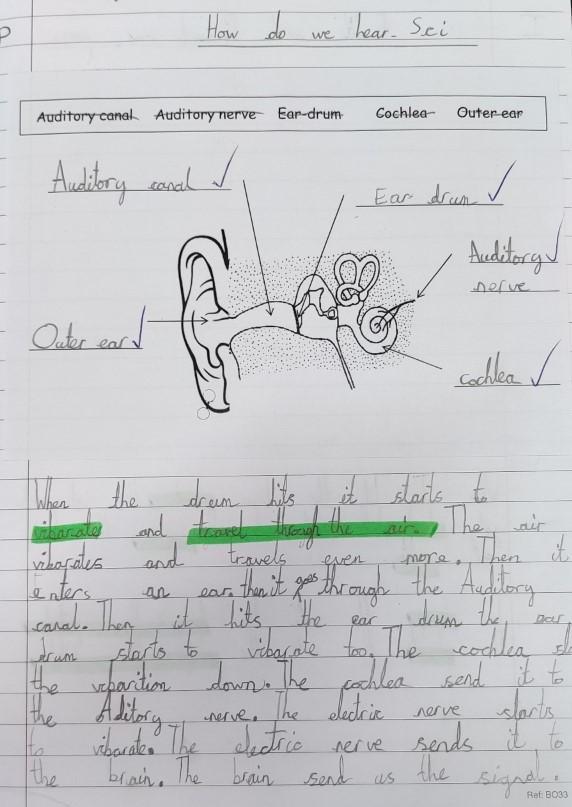 How do we hear. Sci
Auditory canal Auditory nerve Ear-drum Cochlea Outer ear
Auditory canal
Ear drum
Auditory
nerve
Outer ear
cochlea
When the drum hits it starts to
vibarate and travel through the air. The air
vibarates and travels even more. Then it
enters an ear. then it goes through the Auditory
canal. Then it hits the ear drum the ear
drum starts to vibarate too. The cochlea
the vibarition down. The cochlea send it to
the Aditory nerve. The electric nerve starts
to vibarate. The electric nerve sends it to
the brain. The brain send us the signal.
Ref: BO33